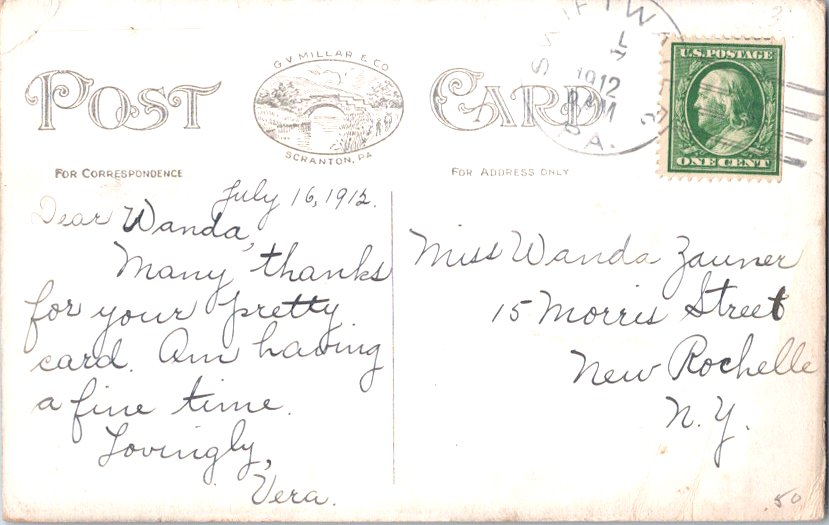 G. V. MILLAR & CO.
SCRANTON, PA
POST CARD
FOR CORRESPONDENCE
FOR ADDRESS ONLY
1912
PA.
U.S. POSTAGE
ONE CENT
July 16, 1912.
Dear Wanda,
Many thanks
for your pretty
card. Am having
a fine time.
Lovingly,
Vera.
Miss Wanda Zauner
15 Morris Street
New Rochelle
N.Y.
.50